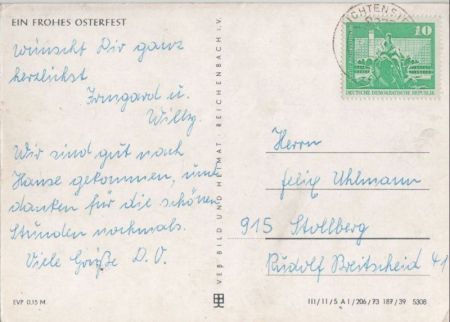 EIN FROHES OSTERFEST
wünscht Dir ganz
herzlichst
Irmgard u.
Willy.
Wir sind gut nach
Hause gekommen, und
danken für die schönen
Stunden nochmals.
Viele Grüße D.O.
EVP 0,15 M
VEB BILD UND HEIMAT, REICHENBACH i. V.
LICHTENSTEIN
10
DEUTSCHE DEMOKRATISCHE REPUBLIK
Herrn
Felix Uhlmann
915 Stollberg
Rudolf Breitscheid 41
III/11/5 A1/206/73 187/39 5308